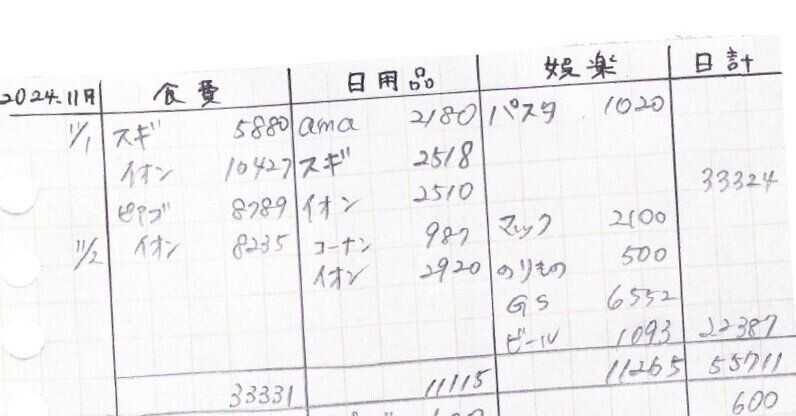 2024.11月 食費 日用品 娯楽 日計
11/1 スギ 5880 ama 2180 パスタ 1020
イオン 10427 スギ 2518
ピアゴ 8789 イオン 2510 33324
11/2 イオン 8235 コーナン 987 マック 2100
イオン 2920 のりもの 500
GS 6552
ビール 1093 22387
33331 11115 11265 55711
600